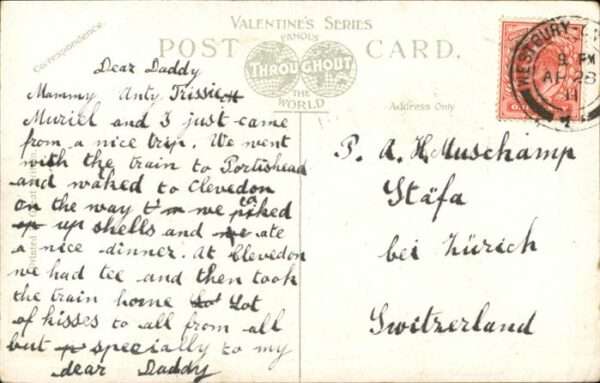 Correspondence
VALENTINE'S SERIES
FAMOUS
POST CARD.
THROUGHOUT
THE
WORLD
Address Only
WESTBURY-
9 PM
AP 28
11
Dear Daddy
Mammy Anty Trissie
Muriel and I just came
from a nice trip. We went
with the train to Portishead
and waked to Clevedon
on the way we piked
up shells and ate
a nice dinner. At Clevedon
we had tee and then took
the train home Lot
of kisses to all from all
but specially to my
dear Daddy
P. A. H. Muschamp
Stäfa
bei Zürich
Switzerland